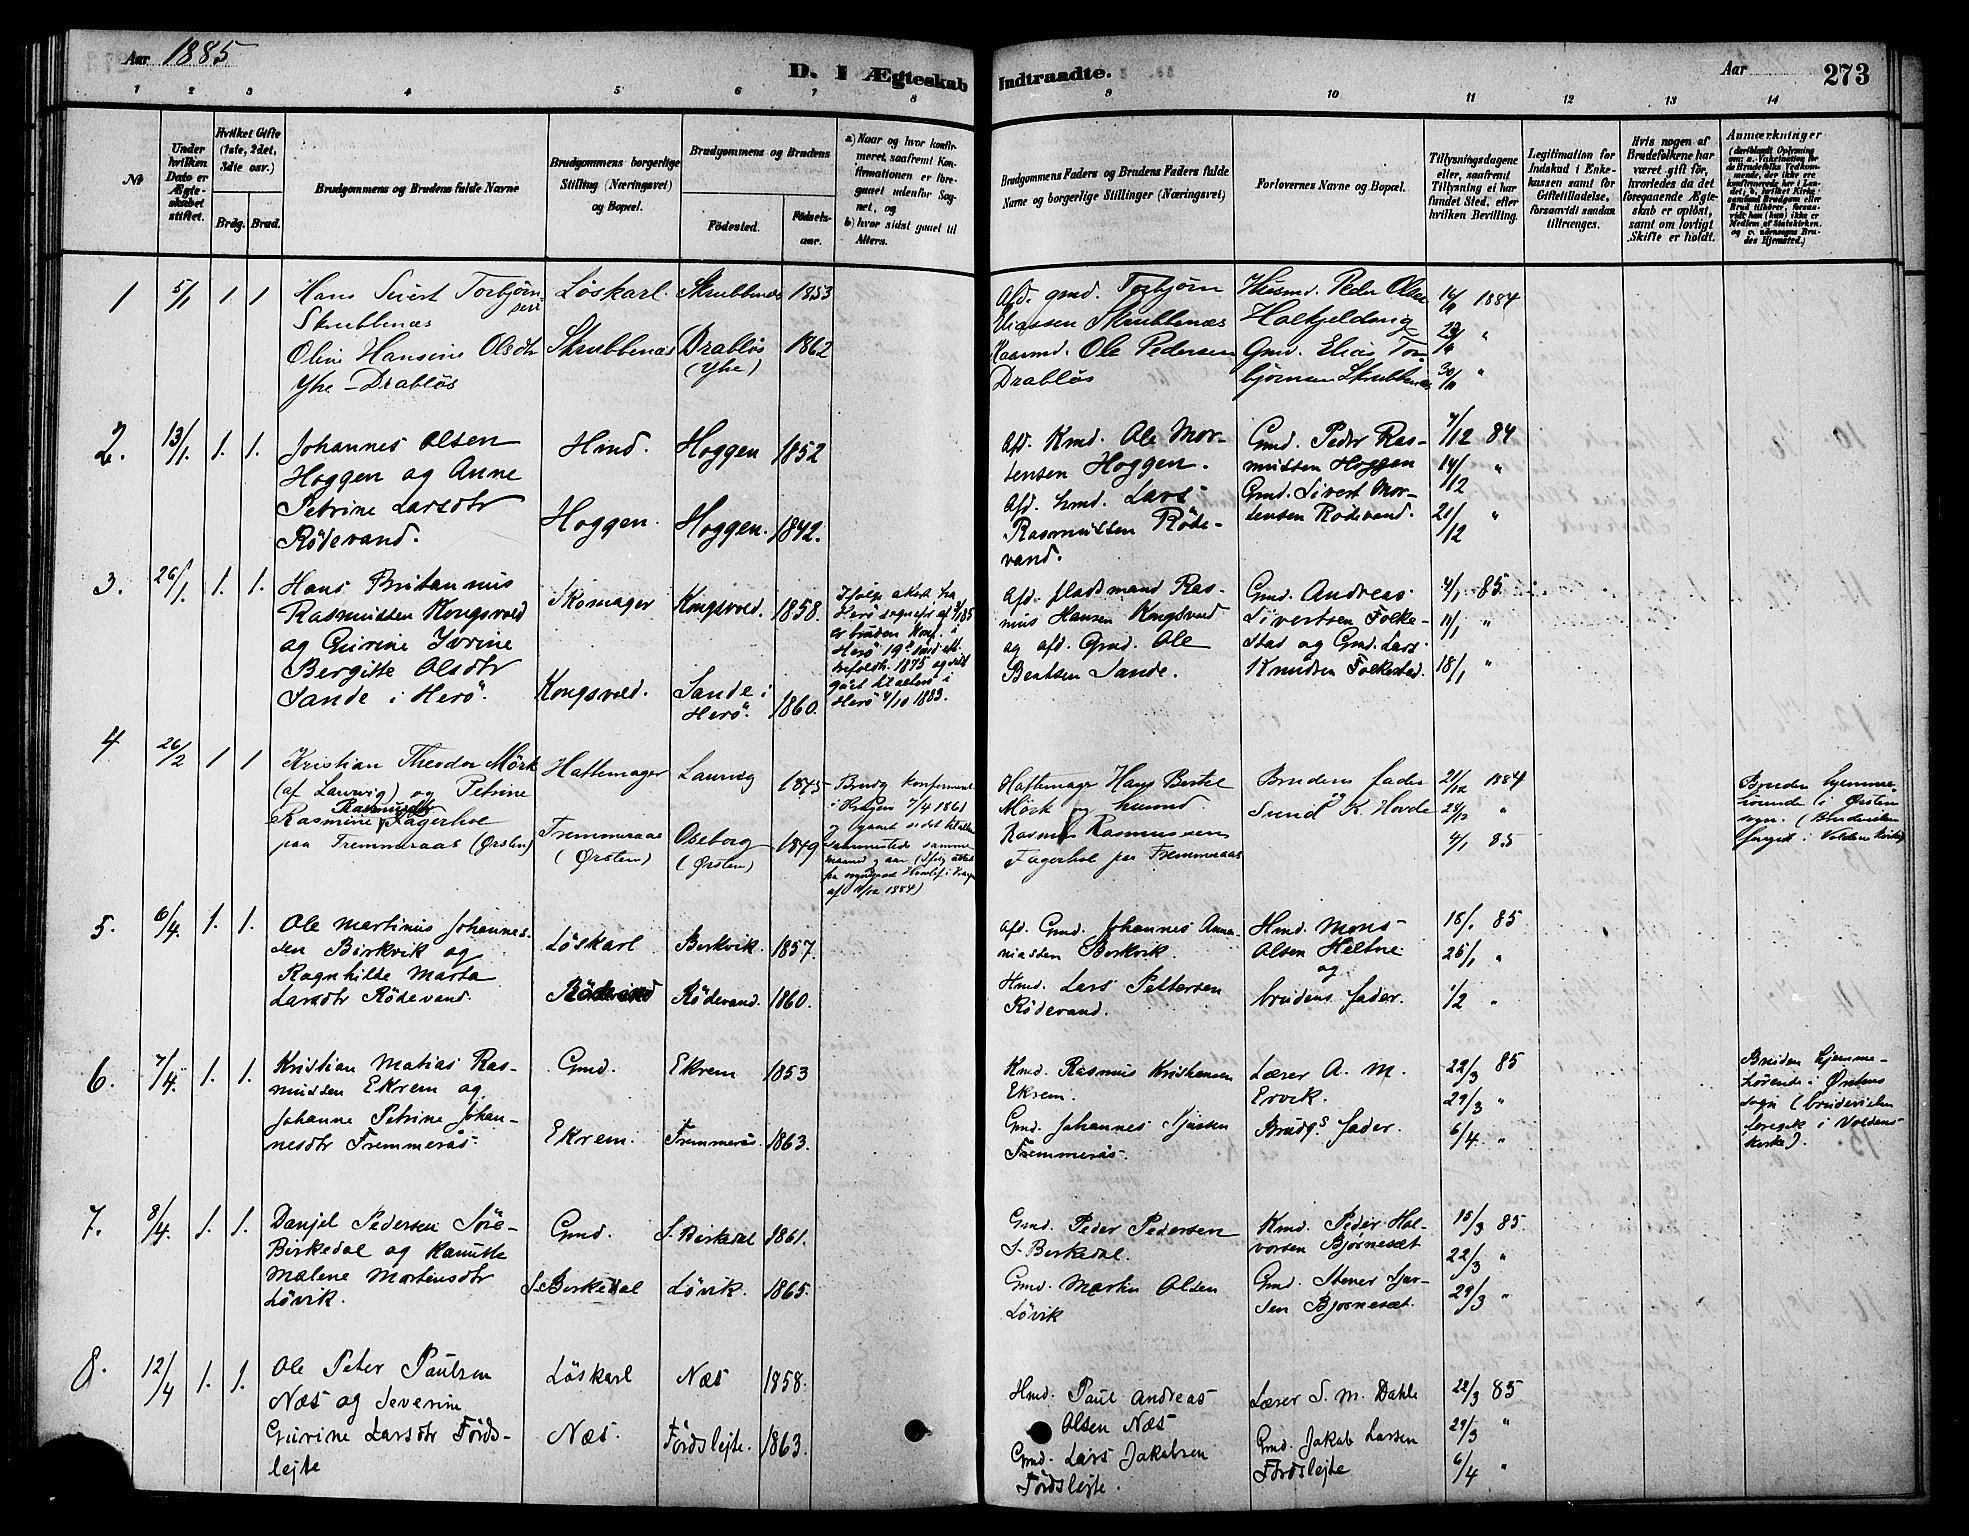 Aar 1885
D. I Ægteskab Indtraadte.
Aar 273
1 2 3 4 5 6 7 8 9 10 11 12 13 14
№
Under hvilken Dato er Ægteskabet stiftet.
Hvilket Gifte (1ste, 2det, 3die osv.)
Brdg. Brud.
Brudgommens og Brudens fulde Navne
Brudgommens borgerlige Stilling (Næringsvei) og Bopæl.
Brudgommens og Brudens
Fødested.
Fødselsaar.
a) Naar og hvor konfirmeret, saafremt Konfirmationen er foregaaet udenfor Sognet, og
b) hvor sidst gaaet til Alters.
Brudgommens Faders og Brudens Faders fulde Navne og borgerlige Stillinger (Næringsvei)
Forlovernes Navne og Bopæl.
Tillysningsdagene eller, saafremt Tillysning ei har fundet Sted, efter hvilken Bevilling.
Legitimation for Indskud i Enkekassen samt for Giftetilladelse, forsaavidt saadan tiltrænges.
Hvis nogen af Brudefolkene har været gift før, hvorledes da det foregaaende Ægteskab er opløst, samt om lovligt Skifte er holdt.
Anmærkninger
1 5/1 1 1
Hans Sivert Torbjørnsen
Skrubbenæs
Oline Hansine Olsdtr
Yhe-Drabløs
Løskarl.
Skrubbenæs
Skrubbenæs 1853
Drabløs 1862
(Yhe)
Afd. gmd. Torbjørn
Eliassen Skrubbenæs
Kaarmd. Ole Pedersen
Drabløs
Husmd. Peder Olsen
Halkjeldsvig
Gmd. Elias Torbjørnsen Skrubbenæs
16/11 1884
23/11 "
30/11 "
2. 13/1. 1. 1.
Johannes Olsen
Hoggen og Anne
Petrine Larsdtr
Rødevand.
Hmd.
Hoggen.
Hoggen 1852
Hoggen. 1842.
Afd. Kmd. Ole Mortensen Hoggen.
Afd. hmd. Lars
Rasmussen Rødevand.
Gmd. Peder Rasmussen Hoggen
Gmd. Sivert Mortensen Rødevand.
7/12 84
14/12 "
21/12 "
3. 26/1. 1. 1.
Hans Britannus
Rasmussen Kongsvold
og Gurine Iverine
Bergitte Olsdtr
Sande i Herö.
Skomager
Kongsvold.
Kongsvold. 1858.
Sande i Herö. 1860.
Ifölge attest fra
Herö sognepr. af 3/1 85
er bruden konf. i
Herö 19de sönd. eft.
trefoldh. 1875 og sidst
gået til alters i
Herö 4/10 1883.
Afd. pladsmand Rasmus Hansen Kongsvold
og afd. Gmd. Ole
Bentsen Sande.
Gmd. Andreas
Sivertsen Folkestad og Gmd. Lars
Knudsen Folkestad.
4/1 85
11/1 "
18/1 "
4 26/2 1 1
Kristian Theodor Mörk
(af Laurvig) og Petrine
Rasmine Rasmusdtr Fagerhol
paa Fremmeraas (Ørsten)
Hattemager
Fremmeraas
(Ørsten)
Laurvig 1845
Oseborg 1849
(Ørsten)
Hattemager Hans Bertel
Mörk og husmd
Rasmus Rasmussen
Fagerhol paa Fremmeraas
Brudens fader
og
Svend K. Hovde
21/12 1884
28/12 "
4/1 85
Bruden hjemmehörende i Ørsten
sogn. (Brudevielsen
foregik i Voldens Kirke)
5. 6/4. 1. 1.
Ole Martinus Johannessen Birkvik og
Ragnhilde Marta
Larsdtr Rödevand.
Löskarl
Rödevand
Berkvik. 1857.
Rödevand. 1860.
Afd. Gmd. Johannes Ananiassen Berkvik.
Hmd. Lars Pettersen
Rödevand.
Hmd. Mons
Olsen Heltne
og
brudens fader.
18/1 85
25/1 "
1/2 "
6. 7/4. 1. 1.
Kristian Matias Rasmussen Ekrem og
Johanne Petrine Johannesdtr Fremmerås.
Gmd.
Ekrem.
Ekrem 1853
Fremmerås. 1863.
Kmd. Rasmus Kristiansen
Ekrem.
Gmd. Johannes Sjursen
Fremmerås.
Lærer A. M.
Ervik.
Brudgs fader.
22/3 85
29/3 "
6/4. "
Bruden hjemmehörende i Örstens
sogn (brudevielsen
foregik i Voldens
kirke).
7. 8/4. 1. 1.
Danjel Pedersen Söre-
Birkedal og Kanutte
Malene Martinsdtr
Lövik.
Gmd.
S. Birkedal
S. Birkedal 1861.
Lövik. 1865.
Gmd. Peder Pedersen
S. Birkedal.
Gmd. Martin Olsen
Lövik
Kmd. Peder Halvorsen Bjørnesæt
Gmd. Stener Sjursen Bjørnesæt.
15/3 85.
22/3 "
29/3 "
8. 12/4 1. 1.
Ole Peter Paulsen
Næs og Severine
Gurine Larsdtr Förds-
lejte
Löskarl
Næs.
Næs 1858.
Fördslejte. 1863.
Hmd. Paul Andreas
Olsen Næs
Gmd. Lars Jakobsen
Fördslejte.
Lærer S. M. Dahle
Gmd. Jakob Larsen
Fördslejte
22/3 85
29/3 "
6/4 "